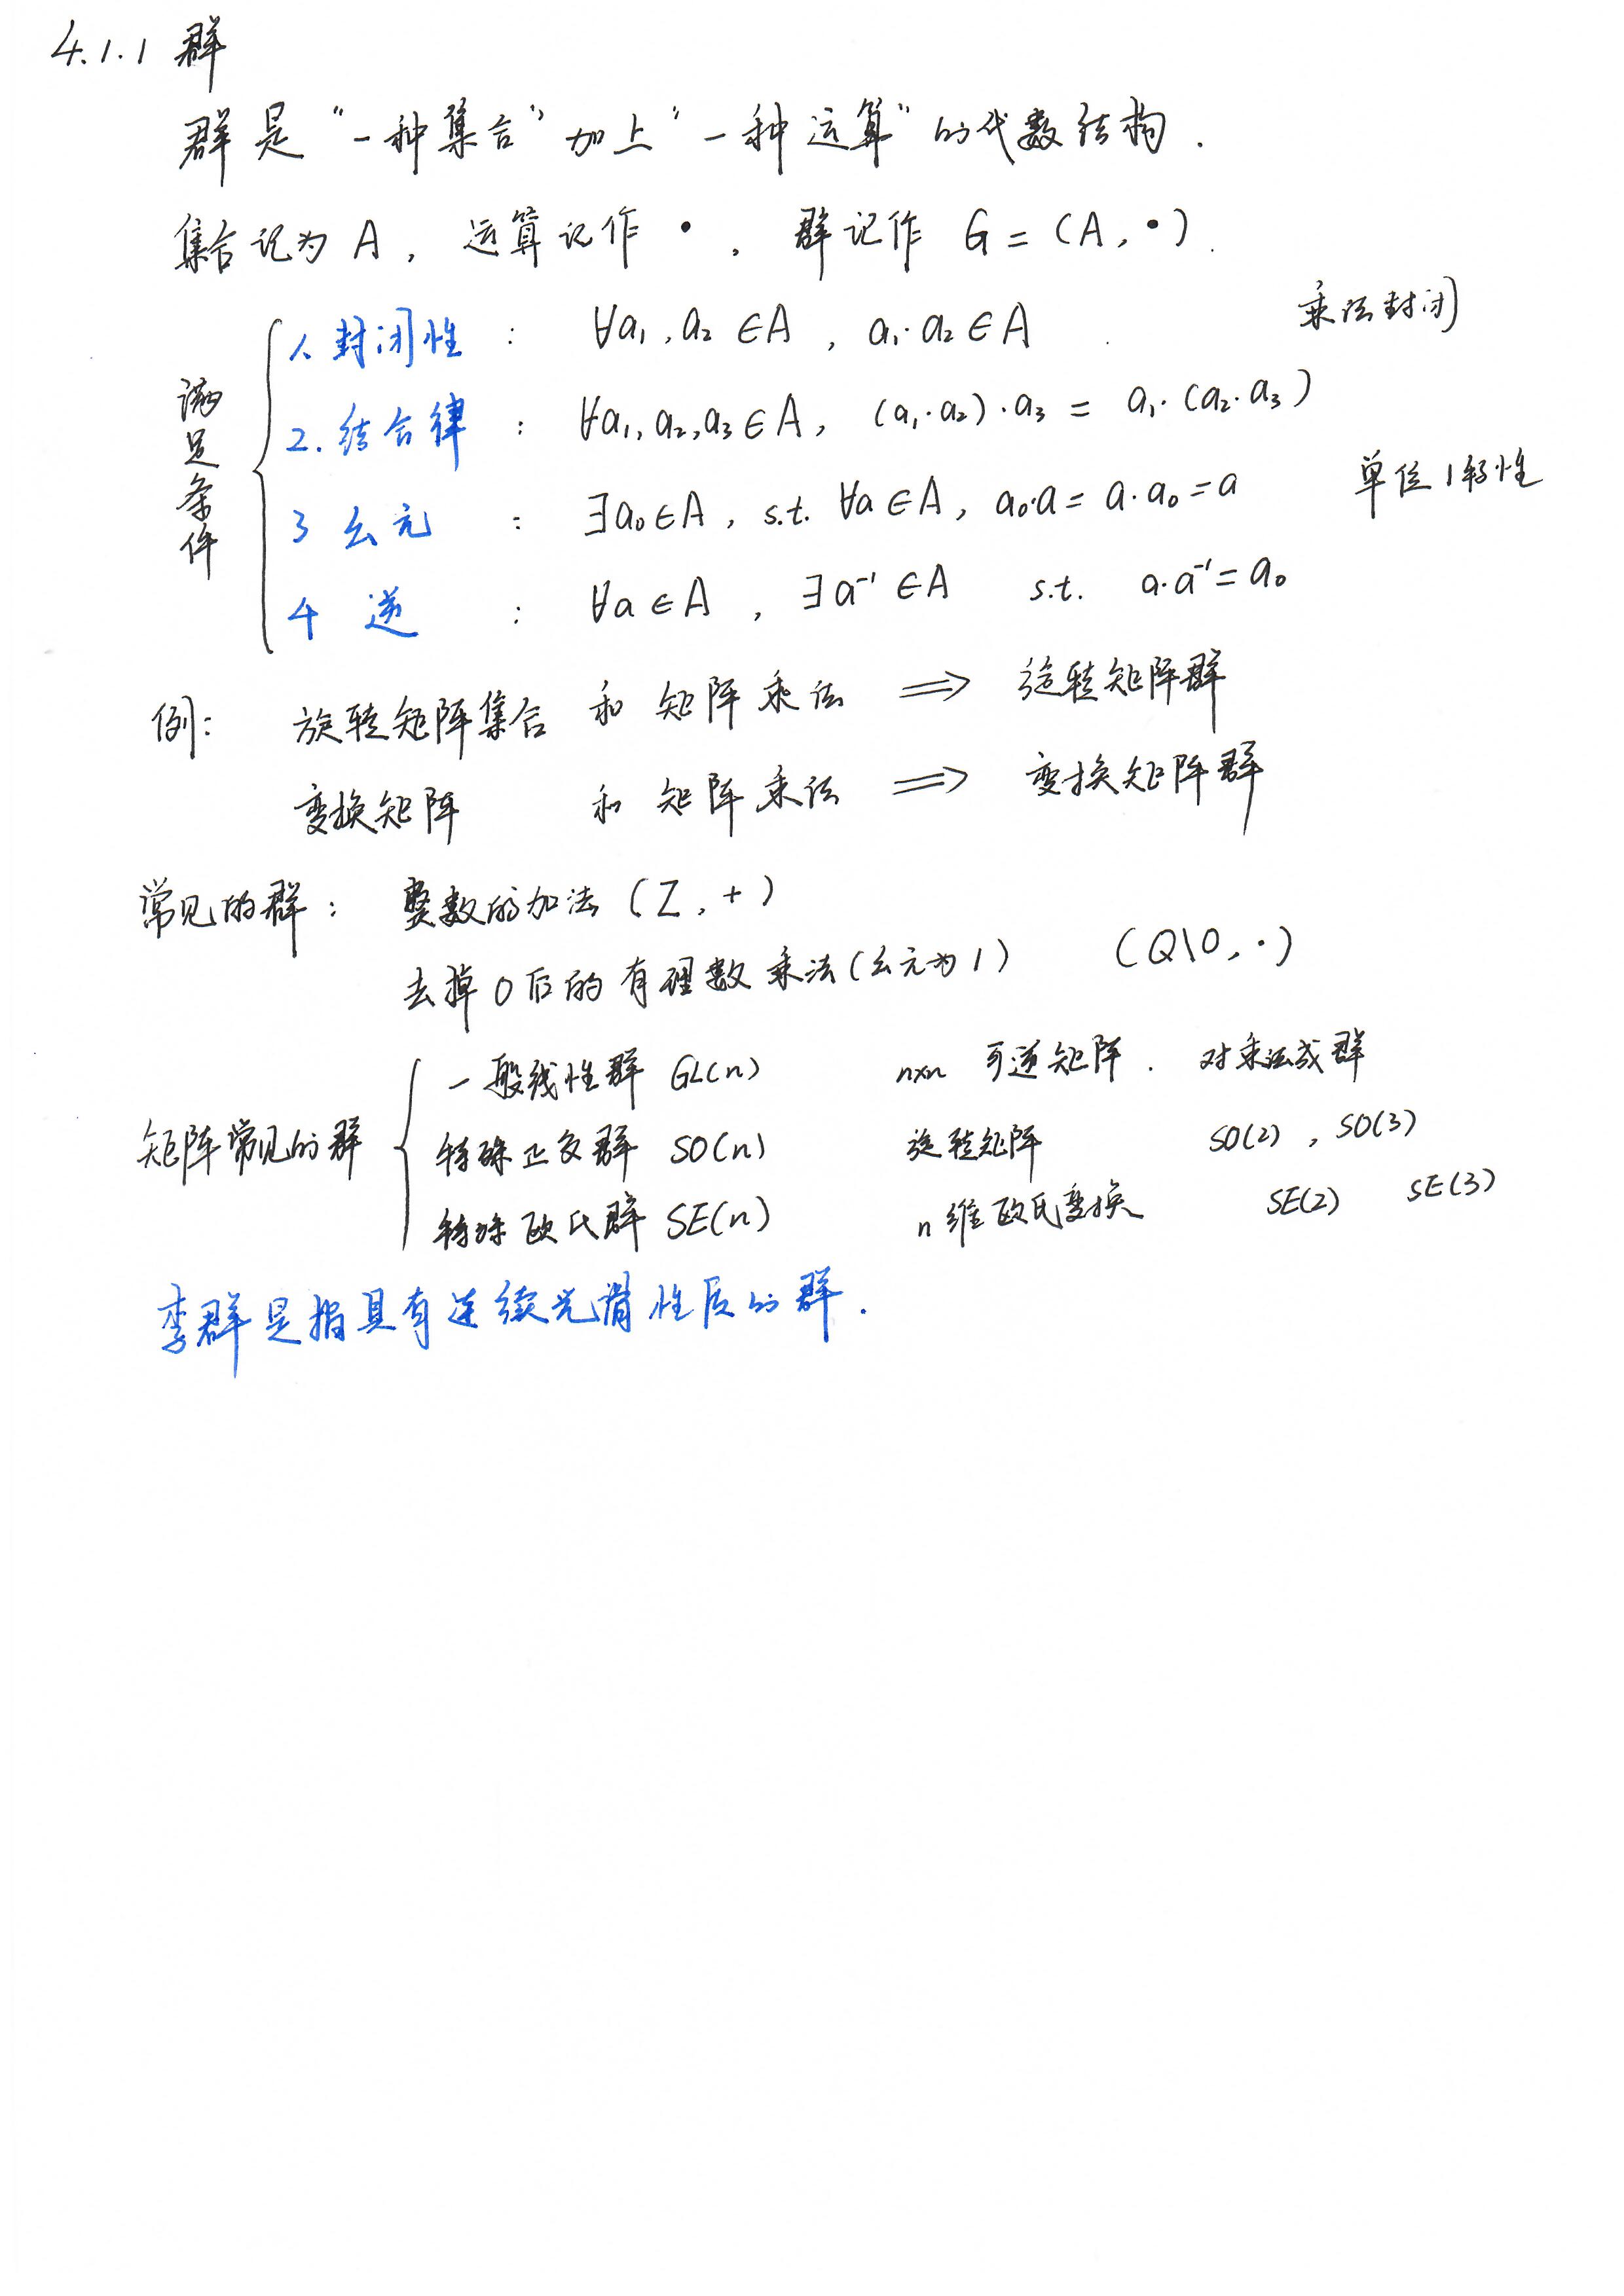 4.1.1 群
群是“一种集合”加上“一种运算”的代数结构.
集合记为 A, 运算记作 ·, 群记作 G = (A, ·).
满足条件
1. 封闭性 : ∀a₁, a₂ ∈A, a₁·a₂ ∈A 乘法封闭
2. 结合律 : ∀a₁, a₂, a₃ ∈A, (a₁·a₂)·a₃ = a₁·(a₂·a₃)
3 幺元 : ∃a₀ ∈A, s.t. ∀a ∈A, a₀·a = a·a₀ = a 单位1特性
4 逆 : ∀a ∈A, ∃a⁻¹ ∈A s.t. a·a⁻¹ = a₀
例: 旋转矩阵集合 和 矩阵乘法 ⟹ 旋转矩阵群
变换矩阵 和 矩阵乘法 ⟹ 变换矩阵群
常见的群: 整数的加法 (Z, +)
去掉0后的有理数乘法(幺元为1) (Q\0, ·)
矩阵常见的群
一般线性群 GL(n) n×n 可逆矩阵. 对乘法成群
特殊正交群 SO(n) 旋转矩阵 SO(2), SO(3)
特殊欧氏群 SE(n) n维欧氏变换 SE(2) SE(3)
李群是指具有连续光滑性质的群.